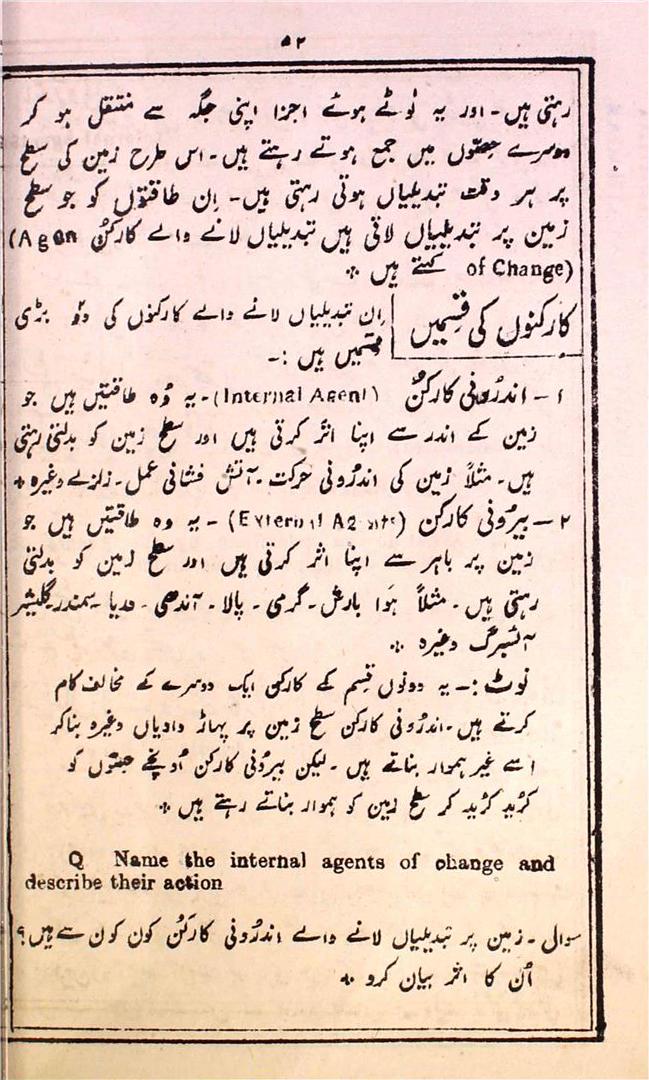 ۵۲
رہتی ہیں۔ اور یہ ٹوٹے ہوئے اجزا اپنی جگہ سے منتقل ہو کر
دوسرے حصّوں میں جمع ہوتے رہتے ہیں۔ اس طرح زمین کی سطح
پر ہر وقت تبدیلیاں ہوتی رہتی ہیں۔ اِن طاقتوں کو جو سطح
زمین پر تبدیلیاں لاتی ہیں تبدیلیاں لانے والے کارکُن (Agen
of Change) کہتے ہیں ❊
کارکنوں کی قِسمیں
اِن تبدیلیاں لانے والے کارکنوں کی دو بڑی
قسمیں ہیں :۔
۱۔ اندرُونی کارکُن (Internal Agent)۔ یہ وُہ طاقتیں ہیں جو
زمین کے اندر سے اپنا اثر کرتی ہیں اور سطح زمین کو بدلتی رہتی
ہیں۔ مثلاً زمین کی اندرُونی حرکت۔ آتش فشانی عمل۔ زلزلے وغیرہ ❊
۲۔ بیرُونی کارکن (External Agents)۔ یہ وہ طاقتیں ہیں جو
زمین پر باہر سے اپنا اثر کرتی ہیں اور سطح زمین کو بدلتی
رہتی ہیں۔ مثلاً ہَوا بارش۔ گرمی۔ پالا۔ آندھی۔ دریا۔ سمندر گلیشیر
آئسبرگ وغیرہ ❊
نوٹ :۔ یہ دونوں قِسم کے کارکن ایک دوسرے کے مخالف کام
کرتے ہیں۔ اندرُونی کارکن سطح زمین پر پہاڑ وادیاں وغیرہ بنا کر
اسے غیر ہموار بناتے ہیں۔ لیکن بیرُونی کارکن اُونچے حصّوں کو
کُرید کُرید کر سطح زمین کو ہموار بناتے رہتے ہیں ❊
Q Name the internal agents of change and
describe their action
سوال۔ زمین پر تبدیلیاں لانے والے اندرُونی کارکُن کون کون سے ہیں؟
اُن کا اثر بیان کرو ❊